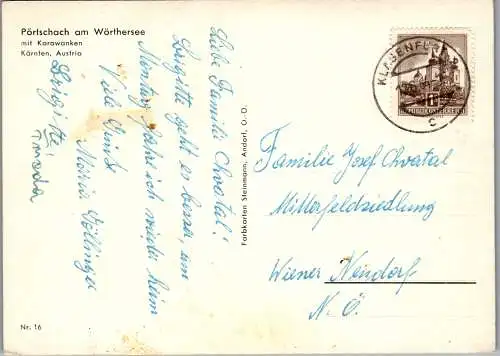 Pörtschach am Wörthersee
mit Karawanken
Kärnten, Austria
Liebe Familie Chvatal!
Brigitte geht es besser, am
Montag fahre ich wieder heim
Viele Grüße
Maria Göllinger
Brigitte
Frieda
Farbkarten Steinmann, Andorf, O.-Ö.
KLAGENFURT
C
REPUBLIK ÖSTERREICH
Familie Josef Chvatal
Mitterfeldsiedlung
Wiener Neudorf
N. Ö.
Nr. 16